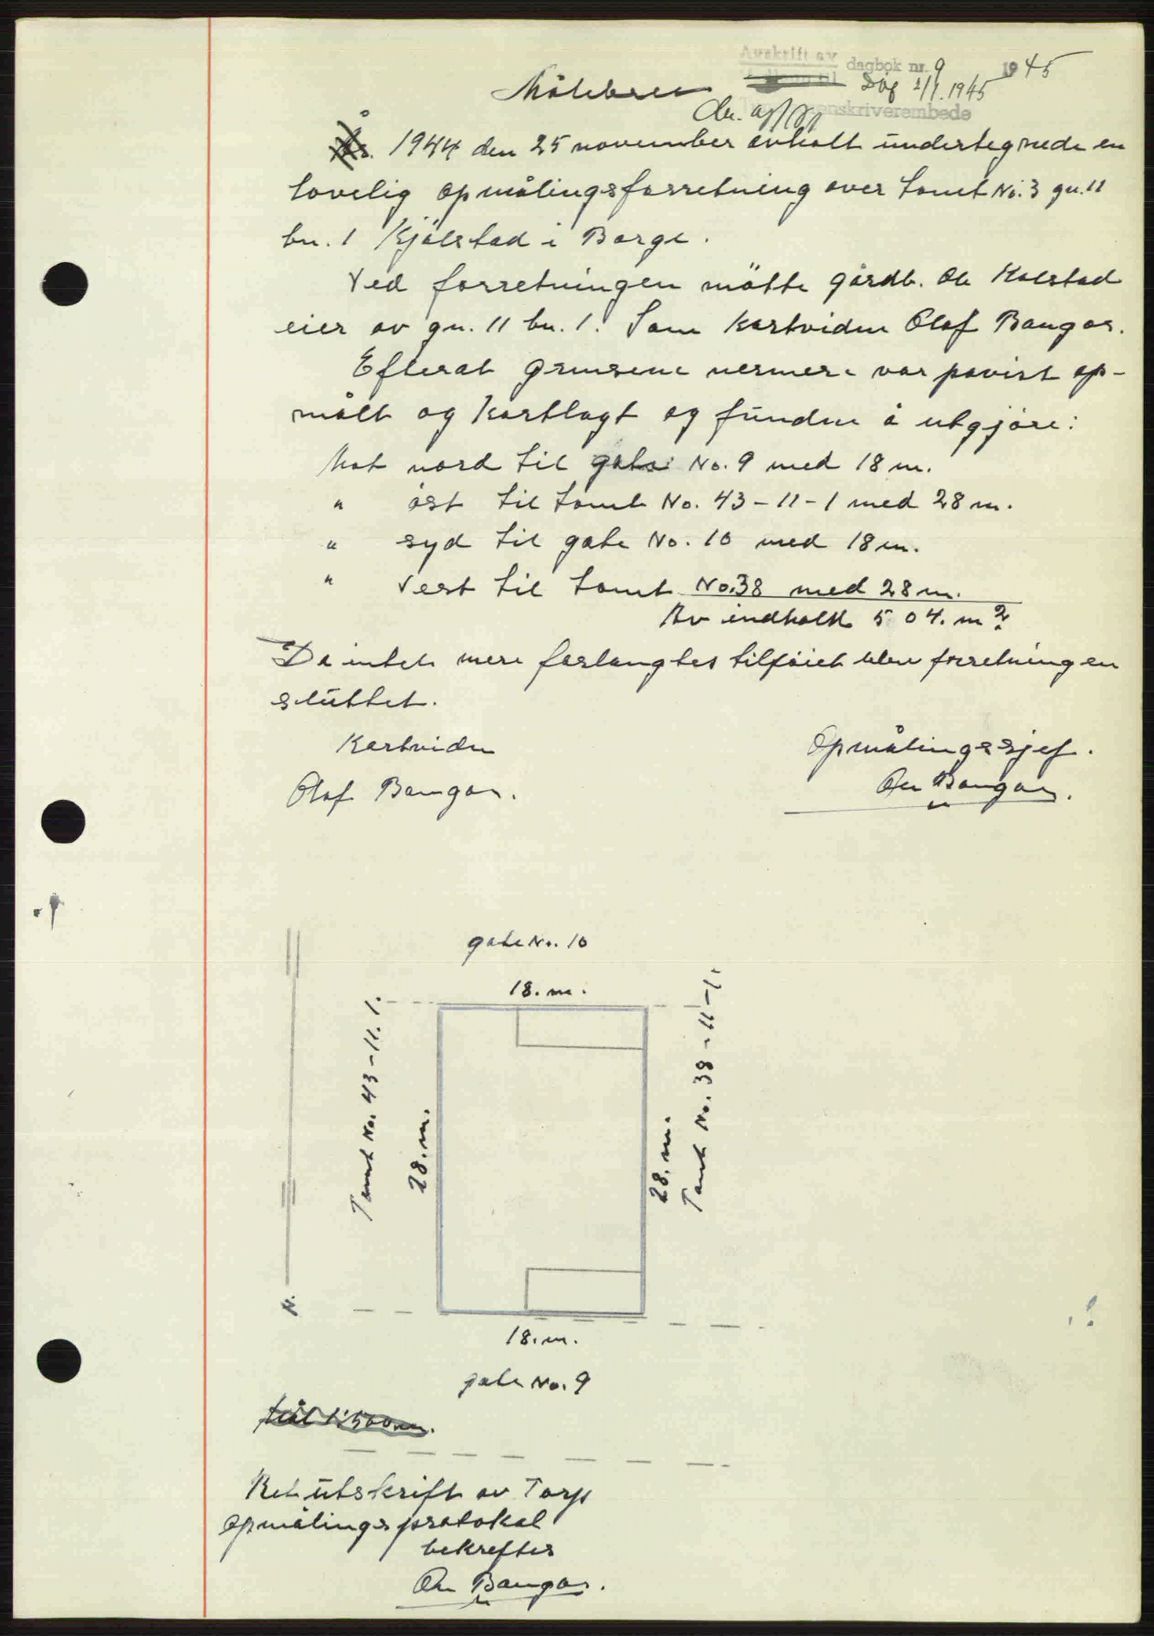 Avskrift av dagbok nr. 9 1945
Målebrev Dag 2/1.1945
enskriverembede
1944 den 25 november avholt undertegnede en
lovelig opmålingsforretning over tomt No. 3 gn. 11
bn. 1 Kjölstad i Borge.
Ved forretningen mötte gårdb. Ole Kolstad
eier av gn. 11 bn. 1. Som kartviden Olof Baugas.
Efterat grensene nermere var påvist op-
målt og kartlagt og funden å utgjöre:
Mot nord til gate No. 9 med 18 m.
" öst til tomt No. 43-11-1 med 28 m.
" syd til gate No. 10 med 18 m.
" vest til tomt No. 38 med 28 m.
Av indholdt 504. m2
Da intet mere forlangtes tilföiet blev forretningen
sluttet.
Kartviden Opmålingssjef.
Olof Baugas. Baugas.
gate No. 10
18. m.
Tomt No. 43-11. 1.
28. m.
28. m.
Tomt No. 38-11-1.
N.
18. m.
gate No. 9
Mål 1:500
Ret utskrift av Torp
opmålingsprotokol
bekreftes
Baugas.